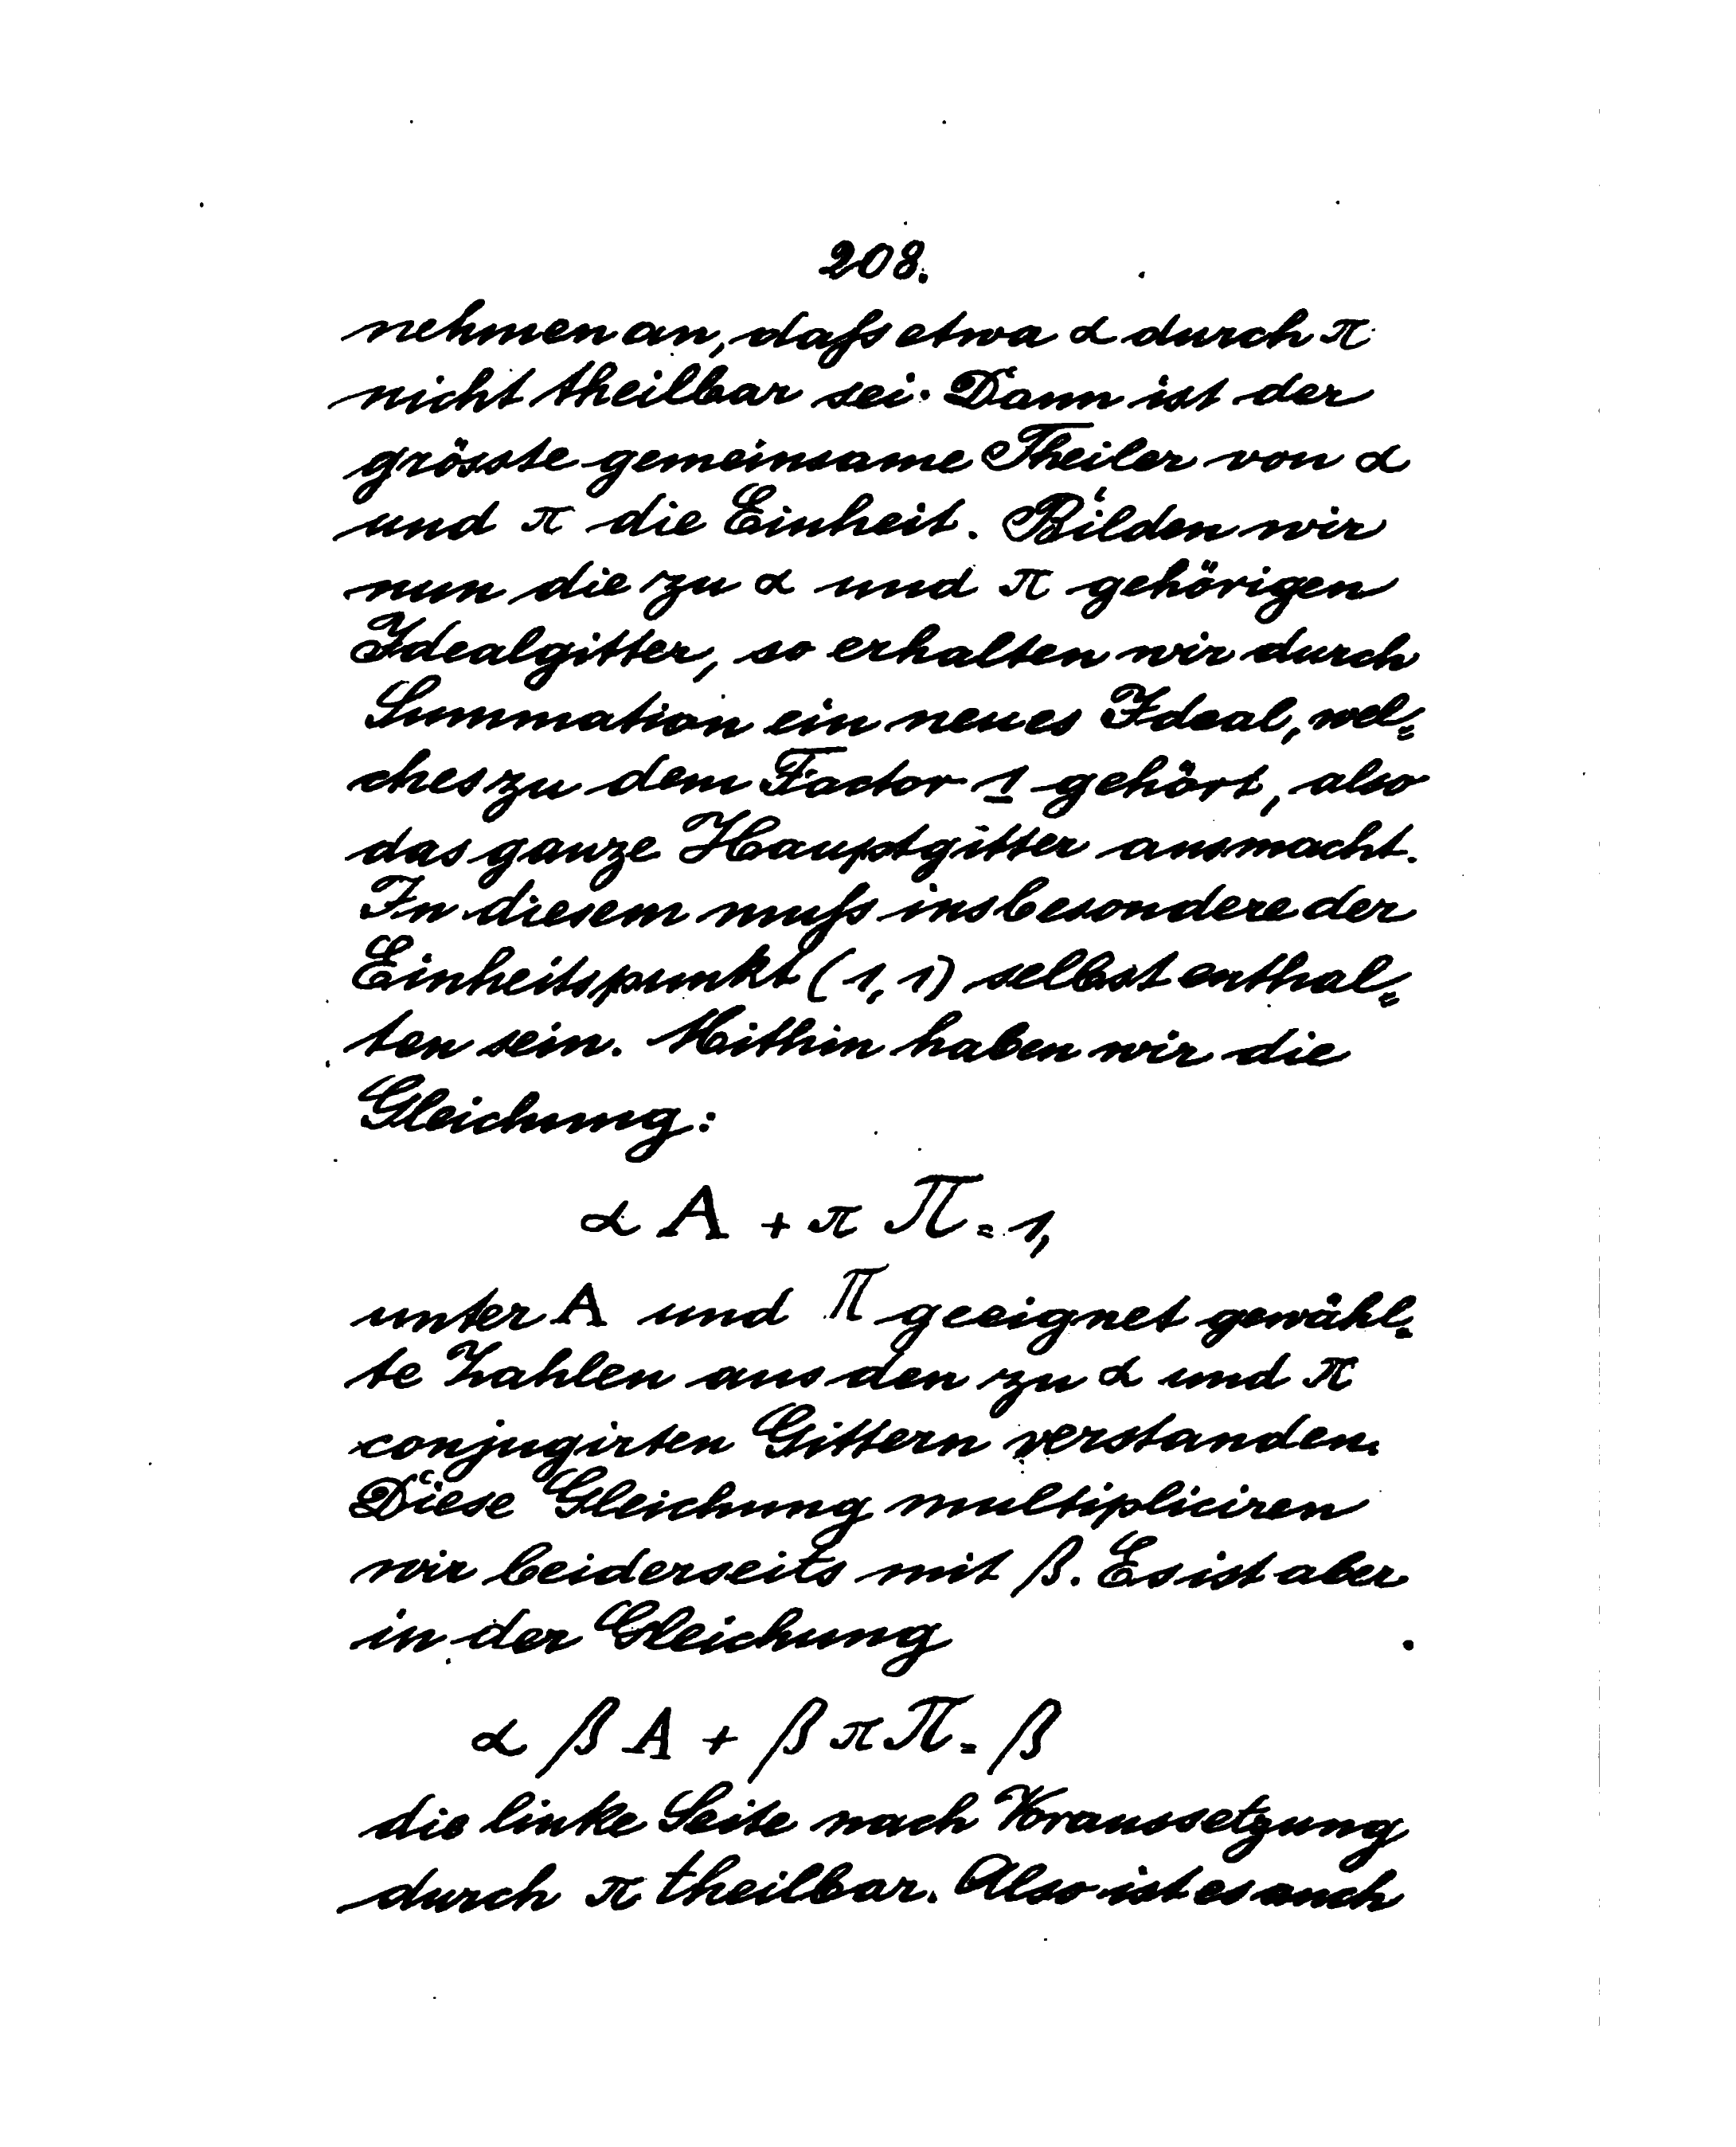 208.
nehmen an, daſs etwa α durch π
nicht theilbar sei. Dann ist der
grösste gemeinsame Theiler von α
und π die Einheit. Bilden wir
nun die zu α und π gehörigen
Idealgitter, so erhalten wir durch
Summation ein neues Ideal, wel=
ches zu dem Factor 1 gehört, also
das ganze Hauptgitter ausmacht.
In diesem muſs insbesondere der
Einheitspunkt (1, 1) selbst enthal=
ten sein. Mithin haben wir die
Gleichung:
α A + π Π = 1,
unter A und Π geeignet gewähl=
te Zahlen aus den zu α und π
conjugirten Gittern verstanden.
Diese Gleichung multipliciren
wir beiderseits mit β. Es ist aber
in der Gleichung
α β A + β π Π = β
die linke Seite nach Voraussetzung
durch π theilbar. Also ist es auch